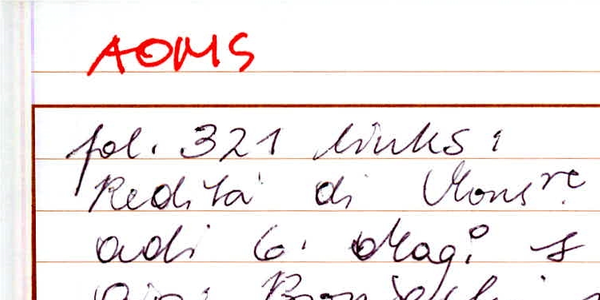 AOMS
fol. 321 links:
Redità di Mons.re
adi 6. Mag.o